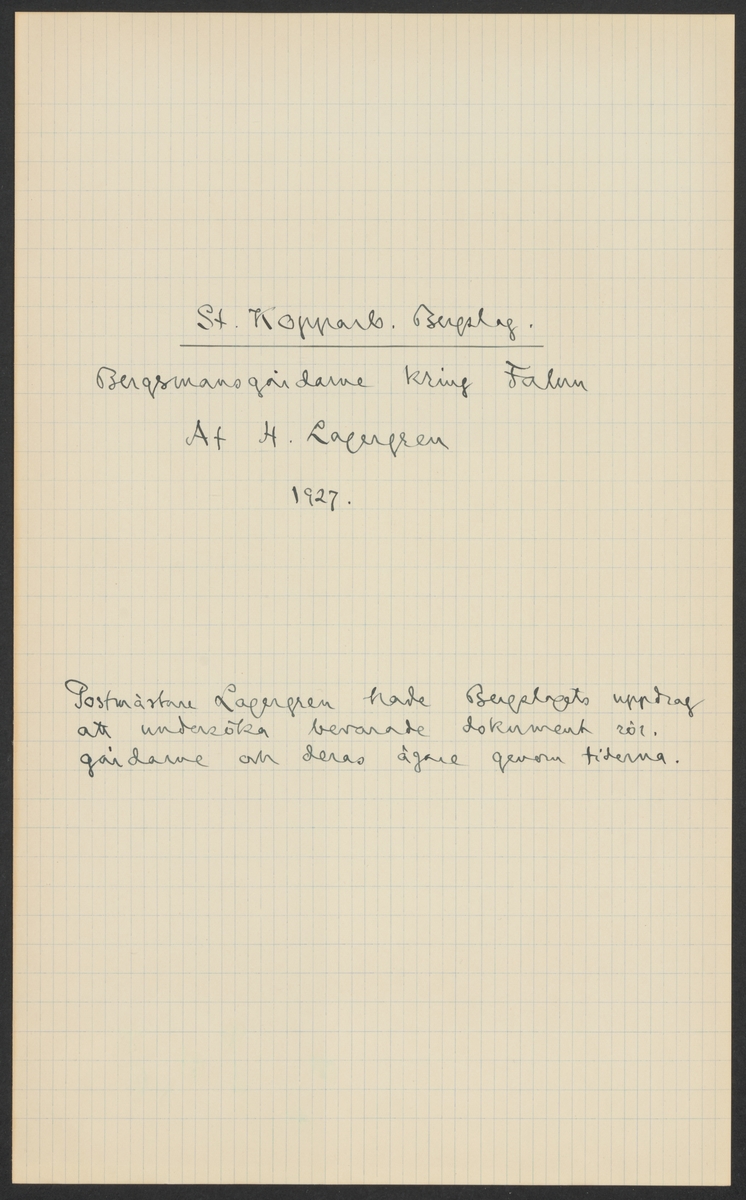 St. Kopparb. Bergslag.
Bergsmansgårdarne kring Falun
Af H. Lagergren
1927.
Postmästare Lagergren hade Bergslagets uppdrag
att undersöka bevarade dokument rör.
gårdarne och deras ägare genom tiderna.